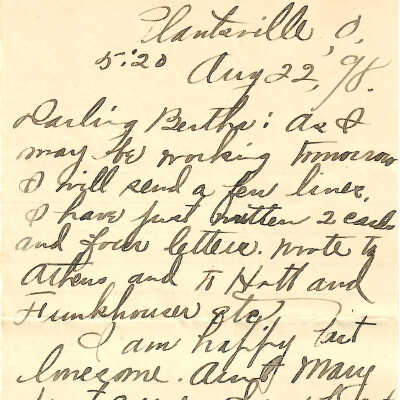 Plantsville, O,
5:20 Aug 22, 98.
Darling Bertha: As I
may be working tomorrow
I will send a few lines.
I have just written 2 cards
and four letters. Wrote to
Athens and to Holl and
Funkhouser etc.
I am happy but
lonesome. Aunt Mary